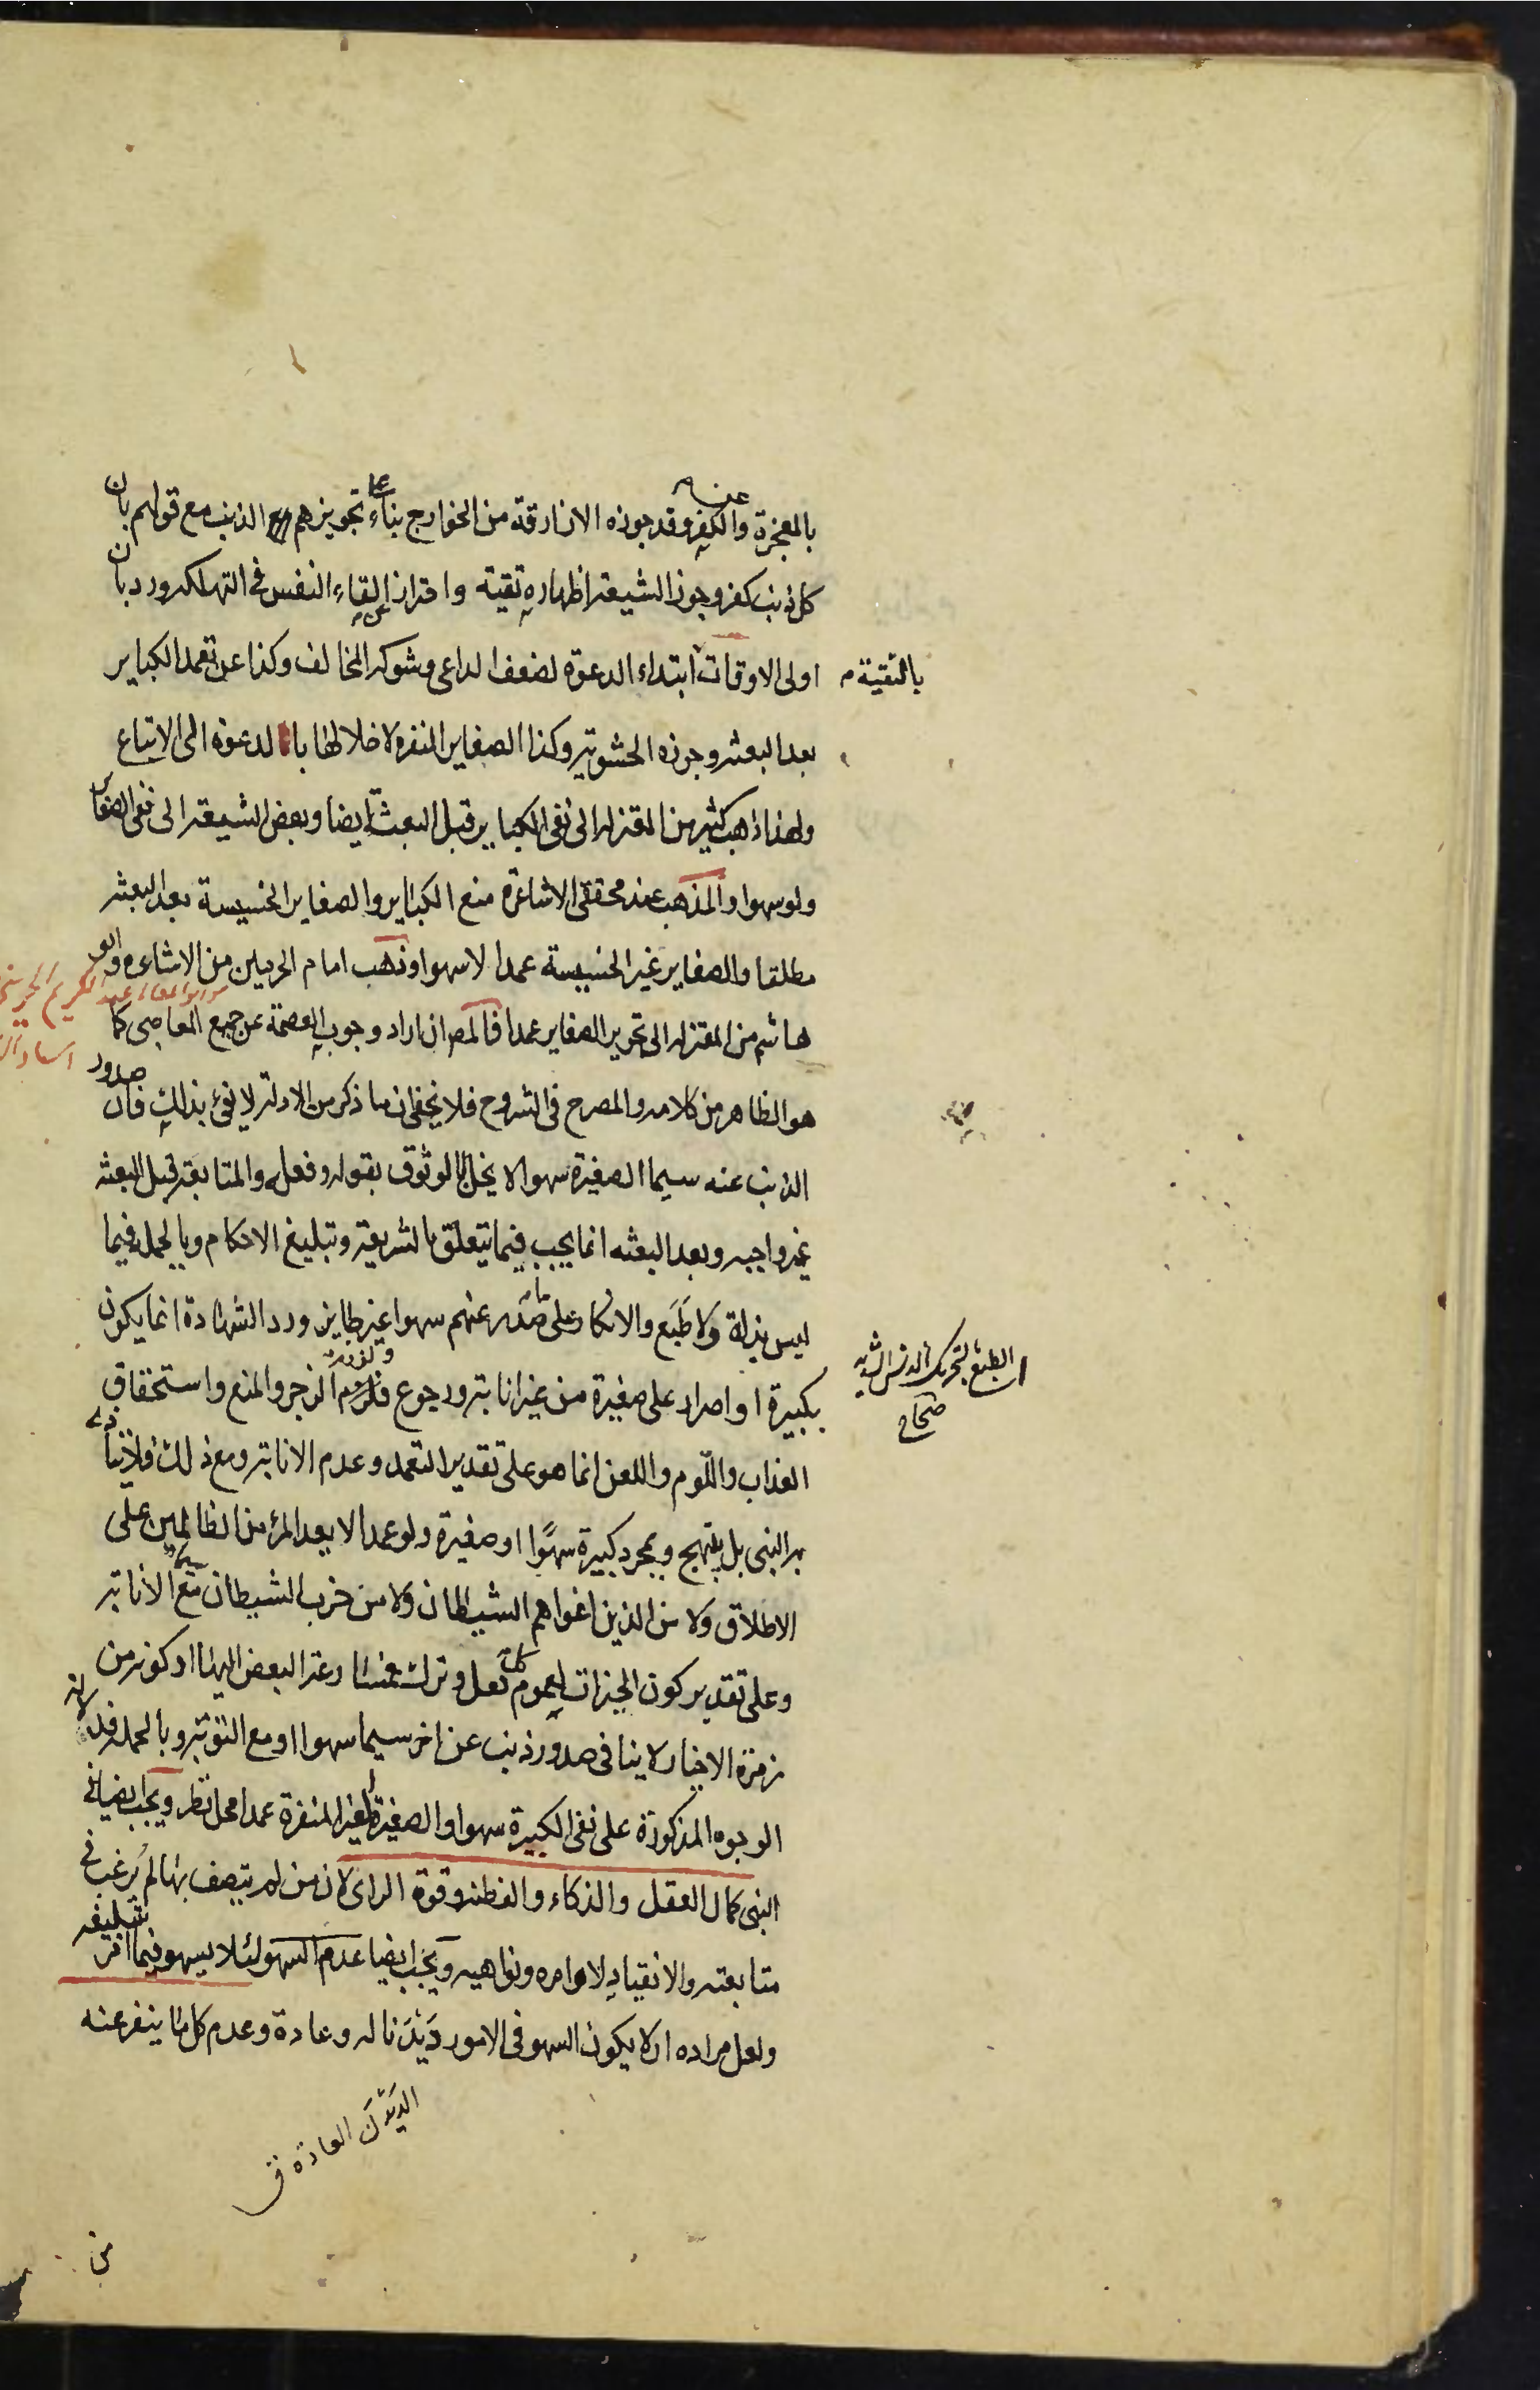 بالمعجزة وعن الكفر وقد جوزه الازارقة من الخوارج بناء على تجويزهم الذنب مع قولهم بان
كل ذنب كفر وجوز الشيعة اظهاره تقية واحترازا عن القاء النفس فى التهلكه ورد بان
اولى الاوقات بالتقية ابتداء الدعوة لضعف الداعى وشوكة المخالف وكذا عن تعمد الكباير
بعد البعثه وجوزه الحشوية وكذا الصغاير المنفره لاخلالها بالدعوه الى الاتباع
ولهذا ذهب كثير من المعتزله الى نفى الكباير قبل البعثة ايضا وبعض الشيعة الى نفى الصغاير
ولو سهوا والمذهب عند محققى الاشاعره منع الكباير والصغاير الخسيسة بعد البعثه
مطلقا والصغاير غير الخسيسة عمدا لا سهوا وذهب امام الحرمين من الاشاعره وابو
هاشم من المعتزله الى تجويز الصغاير عمدا فالمصر ان اراد وجوب العصمة عن جميع المعاصى كما
هو الظاهر من كلامه والمصرح فى الشروح فلا يخفى ان ما ذكر من الادلة لا يفى بذلك فان صدور
الذنب عنه سيما الصغيرة سهوا لا يخل بالوثوق بقوله وفعله والمتابعة قبل البعثه
غير واجبه وبعد البعثه انما يجب فيما يتعلق بالشريعة وتبليغ الاحكام وبالجملة فيما
ليس بزلة ولا طَبَع والانكار على ما صدر عنهم سهوا غير جاين ورد الشهادة انما يكون
بكبيرة او اصرار على صغيرة من غير انابة ورجوع ولزوم الزجر والمنع واستحقاق
العذاب واللّوم واللعن انما هو على تقدير التعمد وعدم الانابة ومع ذلك فلا يتأذى
به النبى بل يبتهج وبمجرد كبيرة سهوًا او صغيرة ولو عمدا لا يعد المرء من الظالمين على
الاطلاق ولا من الذين اغواهم الشيطان ولا من حزب الشيطان سيما مع الانابة
وعلى تقدير كون الخيرات لعموم كل فعل وترك فمسارعة البعض اليها او كونه من
زمرة الاخيار لا ينافى صدور ذنب عن اخر سيما سهوا او مع التوبة وبالجمله فدلالة
الوجوه المذكورة على نفى الكبيرة سهوا والصغيرة الغير المنفرة عمدا محل نظر ويجب ايضا فى
النبى كمال العقل والذكاء والفطنه وقوة الراى لان من لم يتصف بها لم يُرغب فى
متابعته والانقياد لاوامره ونواهيه ويجب ايضا عدم السهو لئلا يسهو فيما امر بتبليغه
ولعل مراده ان لا يكون السهو فى الامور دَيْدَنا له وعادة وعدم كل ما ينفر عنه
بالتقية
الطبع بالتحريك الدنس الشديد
صحاح
الدَيْدَن العادة ق
من